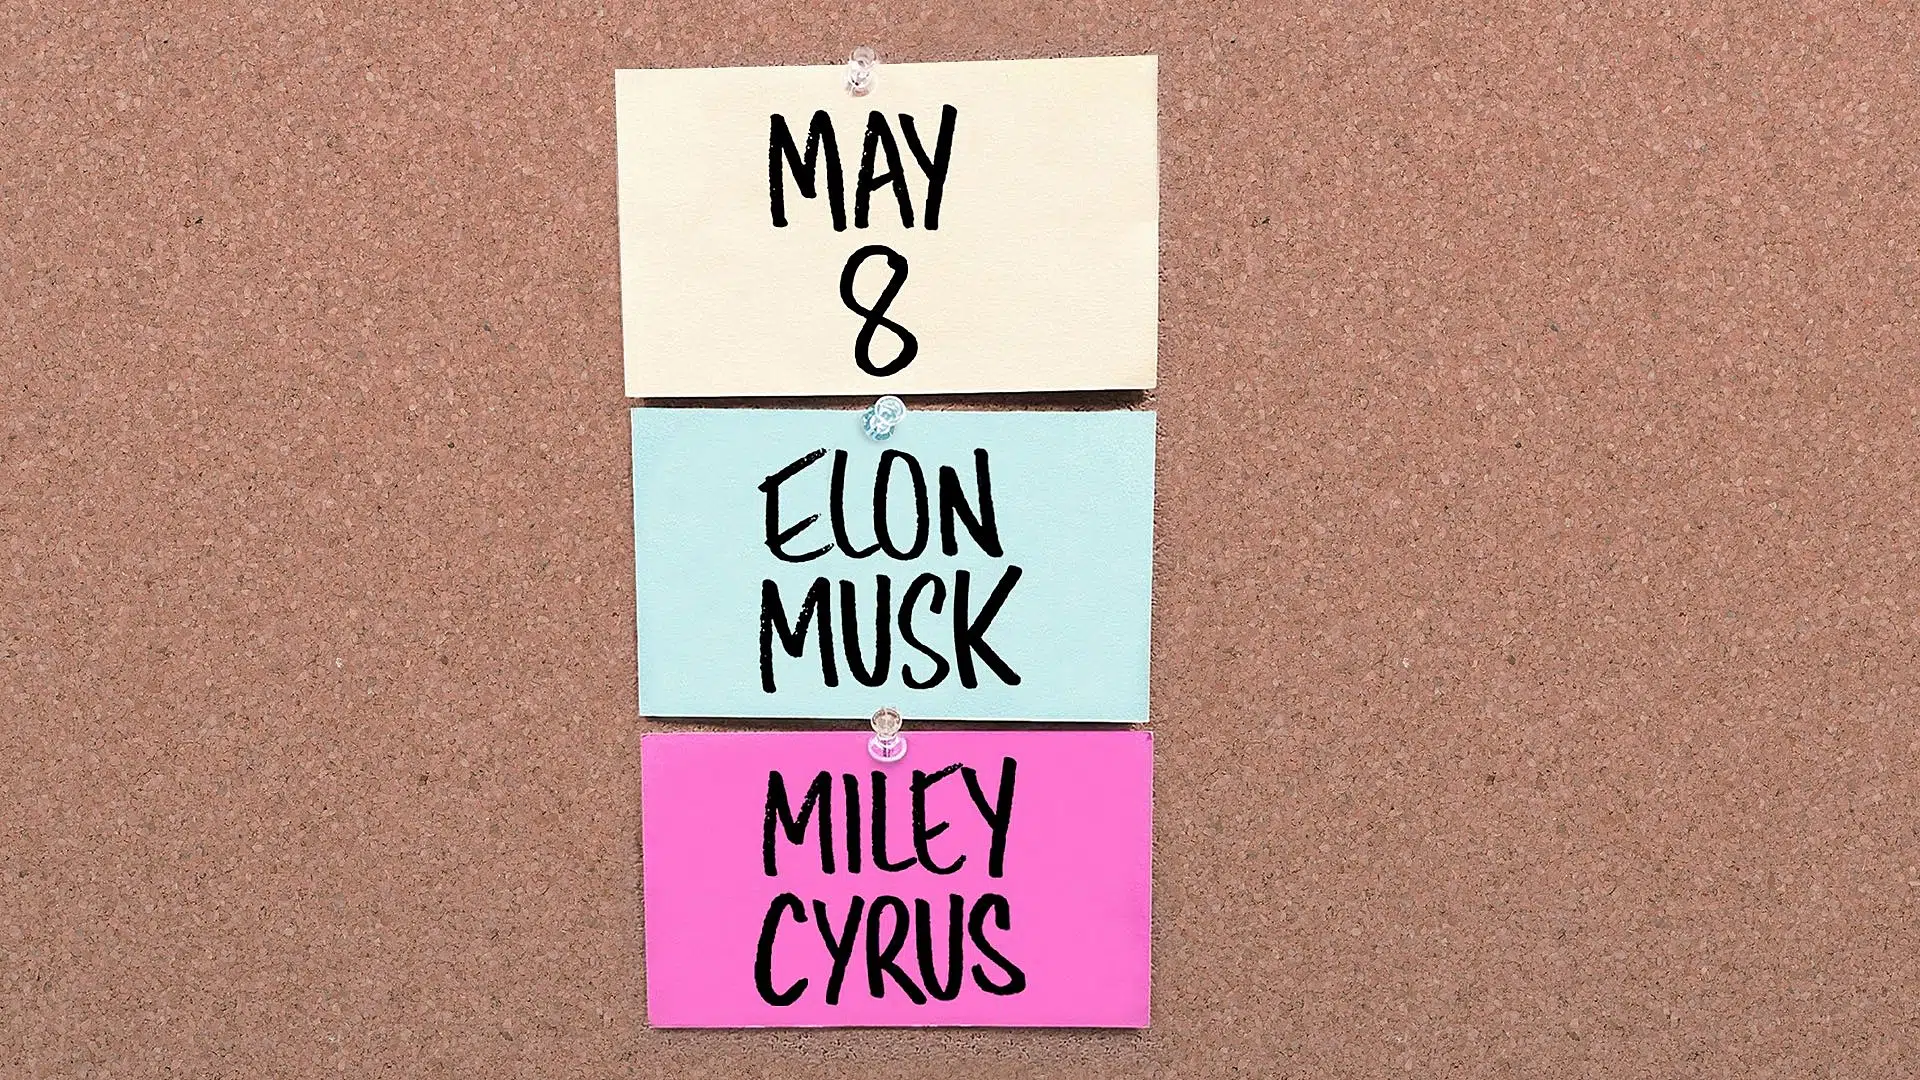 MAY
8
ELON
MUSK
MILEY
CYRUS